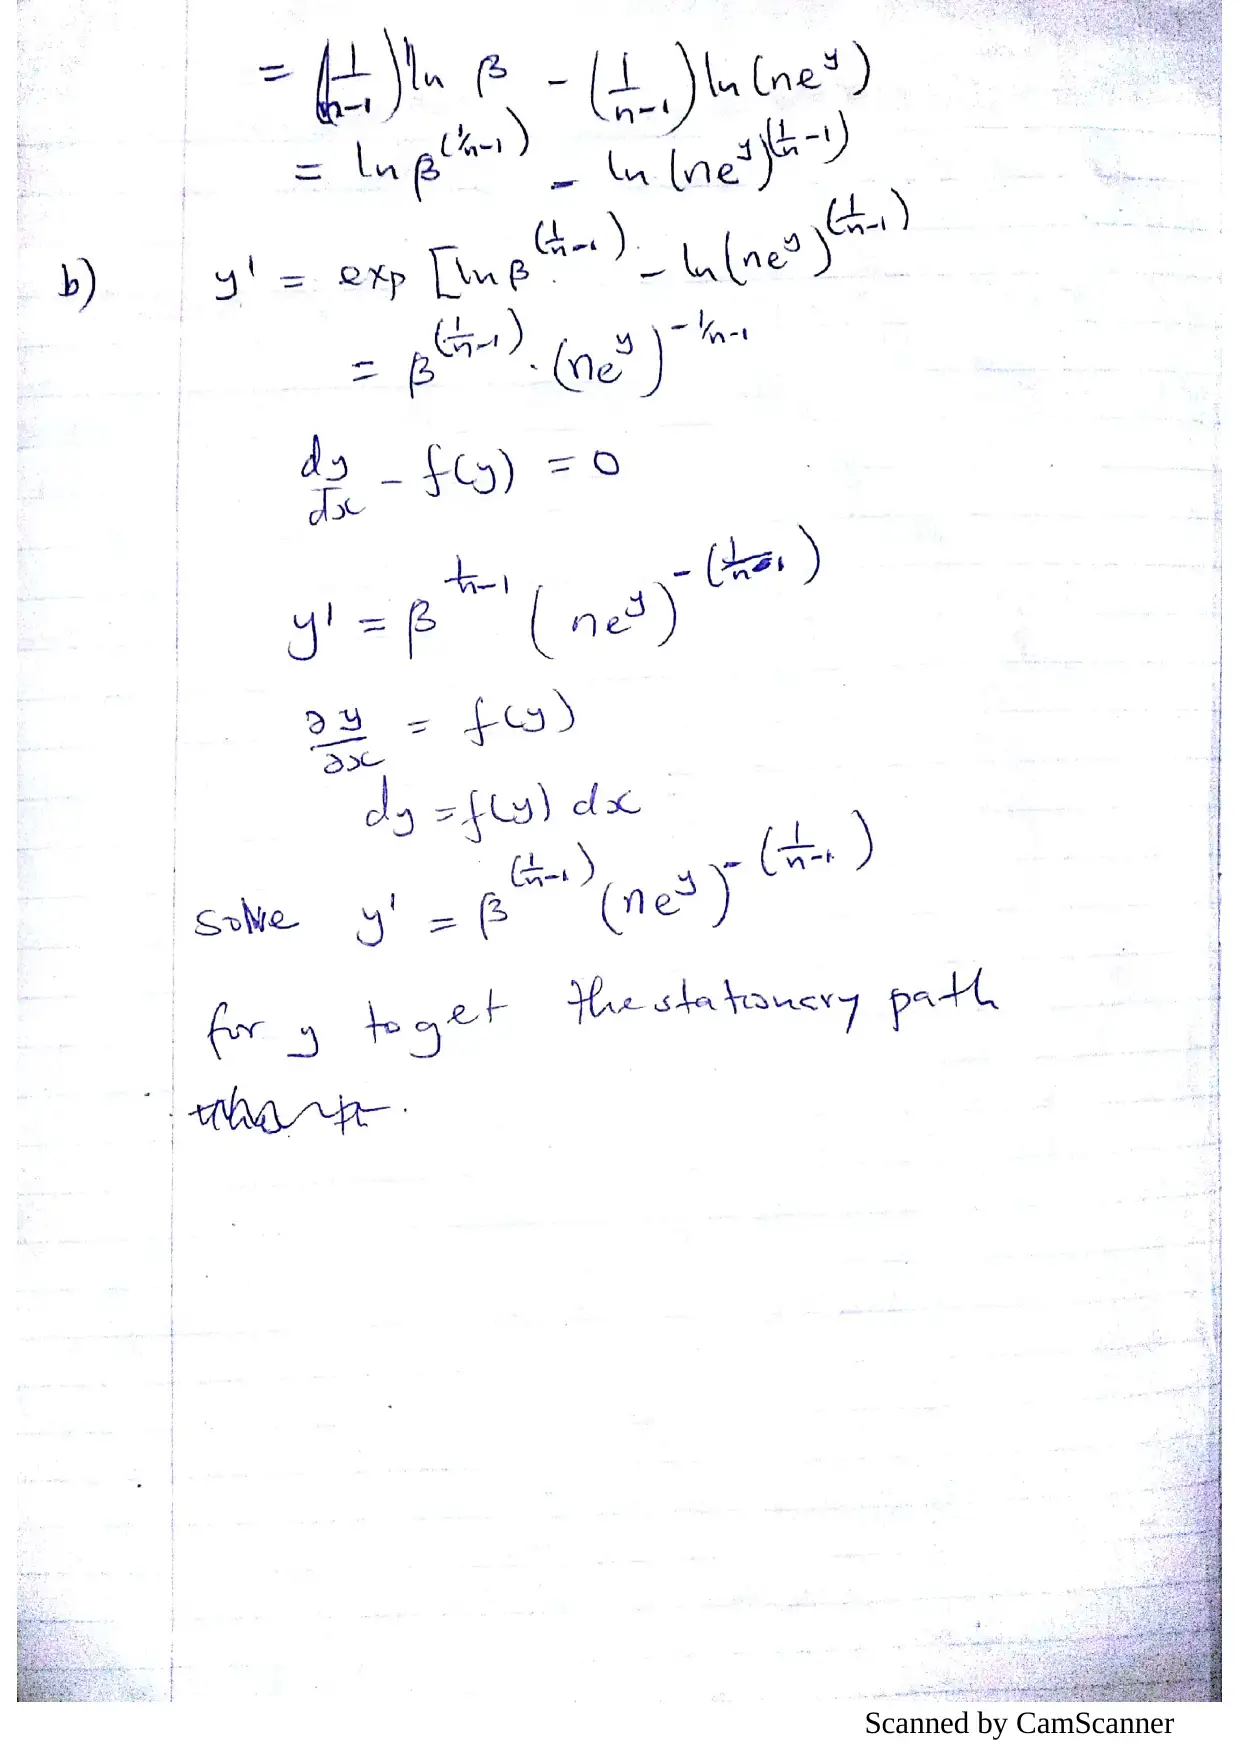 = (1/n-1) ln β - (1/n-1) ln (ne^y)
= ln β^(1/n-1) - ln (ne^y)^(1/n-1)
b) y' = exp [ln β^(1/n-1) - ln (ne^y)^(1/n-1)
= β^(1/n-1) . (ne^y)^-1/n-1
dy/dx - f(y) = 0
y' = β^1/n-1 (ne^y)^-(1/n-1)
∂y/∂x = f(y)
dy = f(y) dx
solve y' = β^(1/n-1) (ne^y)^-(1/n-1)
for y to get the stationary path
Scanned by CamScanner